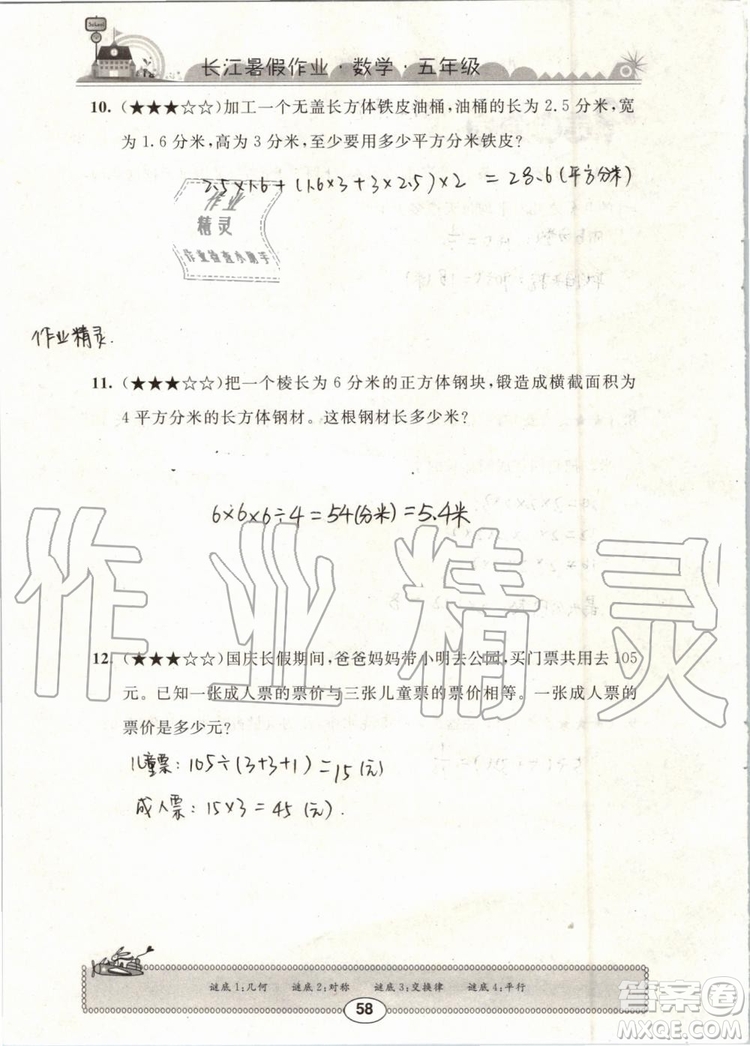 School
长江暑假作业·数学·五年级
10.(★★★☆☆)加工一个无盖长方体铁皮油桶,油桶的长为2.5分米,宽
为1.6分米,高为3分米,至少要用多少平方分米铁皮?
2.5×1.6+(1.6×3+3×2.5)×2 =28.6(平方分米)
作业
精灵
作业检查小助手
作业精灵.
11.(★★★☆☆)把一个棱长为6分米的正方体钢块,锻造成横截面积为
4平方分米的长方体钢材。这根钢材长多少米?
6×6×6÷4=54(分米)=5.4米
作业精灵
12.(★★★☆☆)国庆长假期间,爸爸妈妈带小明去公园,买门票共用去105
元。已知一张成人票的票价与三张儿童票的票价相等。一张成人票的
票价是多少元?
儿童票:105÷(3+3+1)=15(元)
成人票:15×3=45(元)
谜底1:几何 谜底2:对称 谜底3:交换律 谜底4:平行
58
答案圈
MXQE.COM